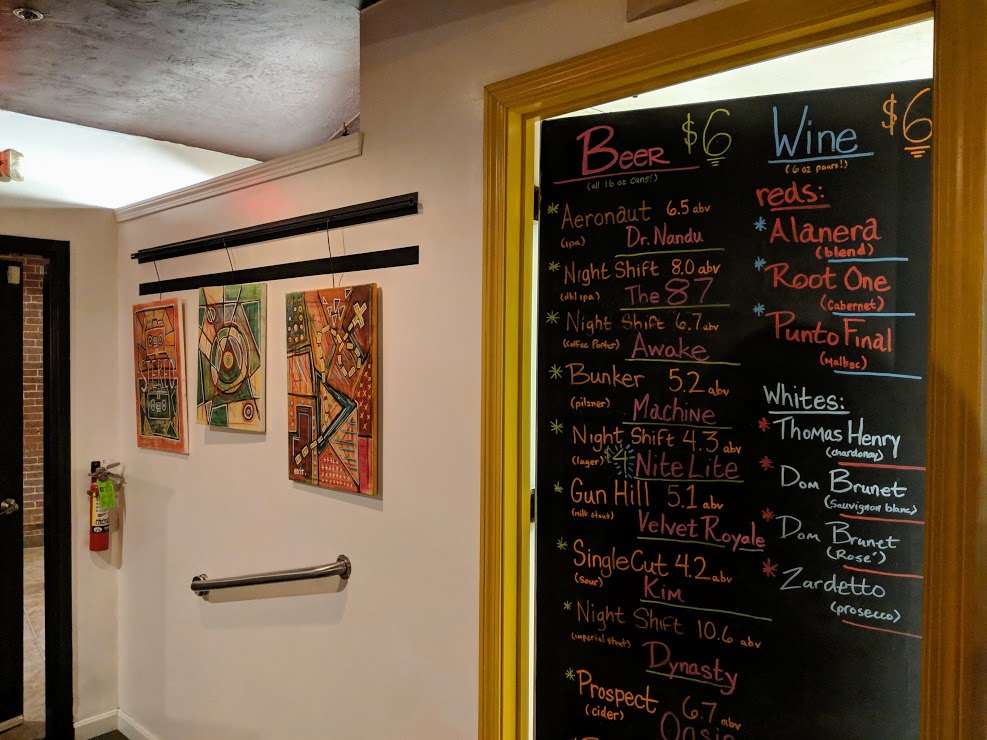 Beer $6
(all 16 oz cans!)
* Aeronaut 6.5 abv
(ipa) Dr. Nandu
* Night Shift 8.0 abv
(dbl ipa) The 87
* Night Shift 6.7 abv
(Coffee Porter) Awake
* Bunker 5.2 abv
(pilzner) Machine
* Night Shift 4.3 abv
(lager) $4 Nite Lite
* Gun Hill 5.1 abv
(milk stout) Velvet Royale
* SingleCut 4.2 abv
(Sour) Kim
* Night Shift 10.6 abv
(imperial stout)
Dynasty
* Prospect 6.7 abv
(cider)
Wine $6
(6 oz pours!)
reds:
* Alanera
(blend)
* Root One
(Cabernet)
* Punto Final
(Malbec)
Whites:
* Thomas Henry
(chardonay)
* Dom Brunet
(Sauvignon blanc)
* Dom Brunet
(Rose')
* Zardetto
(prosecco)